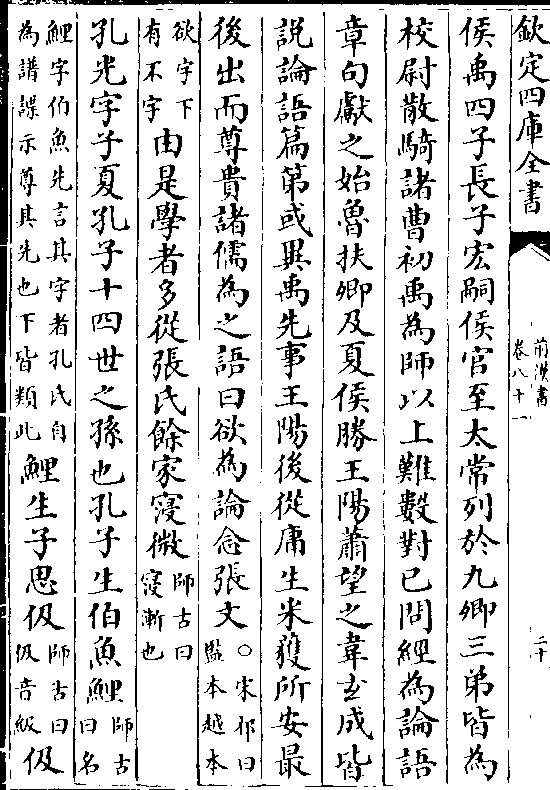 欽定四庫全書
前漢書
卷八十一
二十
侯禹四子長子宏嗣侯官至太常列於九卿三弟皆為
校尉散騎諸曹初禹為師以上難數對已問經為論語
章句獻之始魯扶卿及夏侯勝王陽蕭望之韋玄成皆
説論語篇第或異禹先事王陽後從庸生采獲所安最
後出而尊貴諸儒為之語曰欲為論念張文○宋祁曰監本越本
欲字下有不字由是學者多從張氏餘家寖微師古曰寖漸也
孔光字子夏孔子十四世之孫也孔子生伯魚鯉師古曰名
鯉字伯魚先言其字者孔氏自為譜諜示尊其先也下皆類此鯉生子思伋師古曰伋音級伋